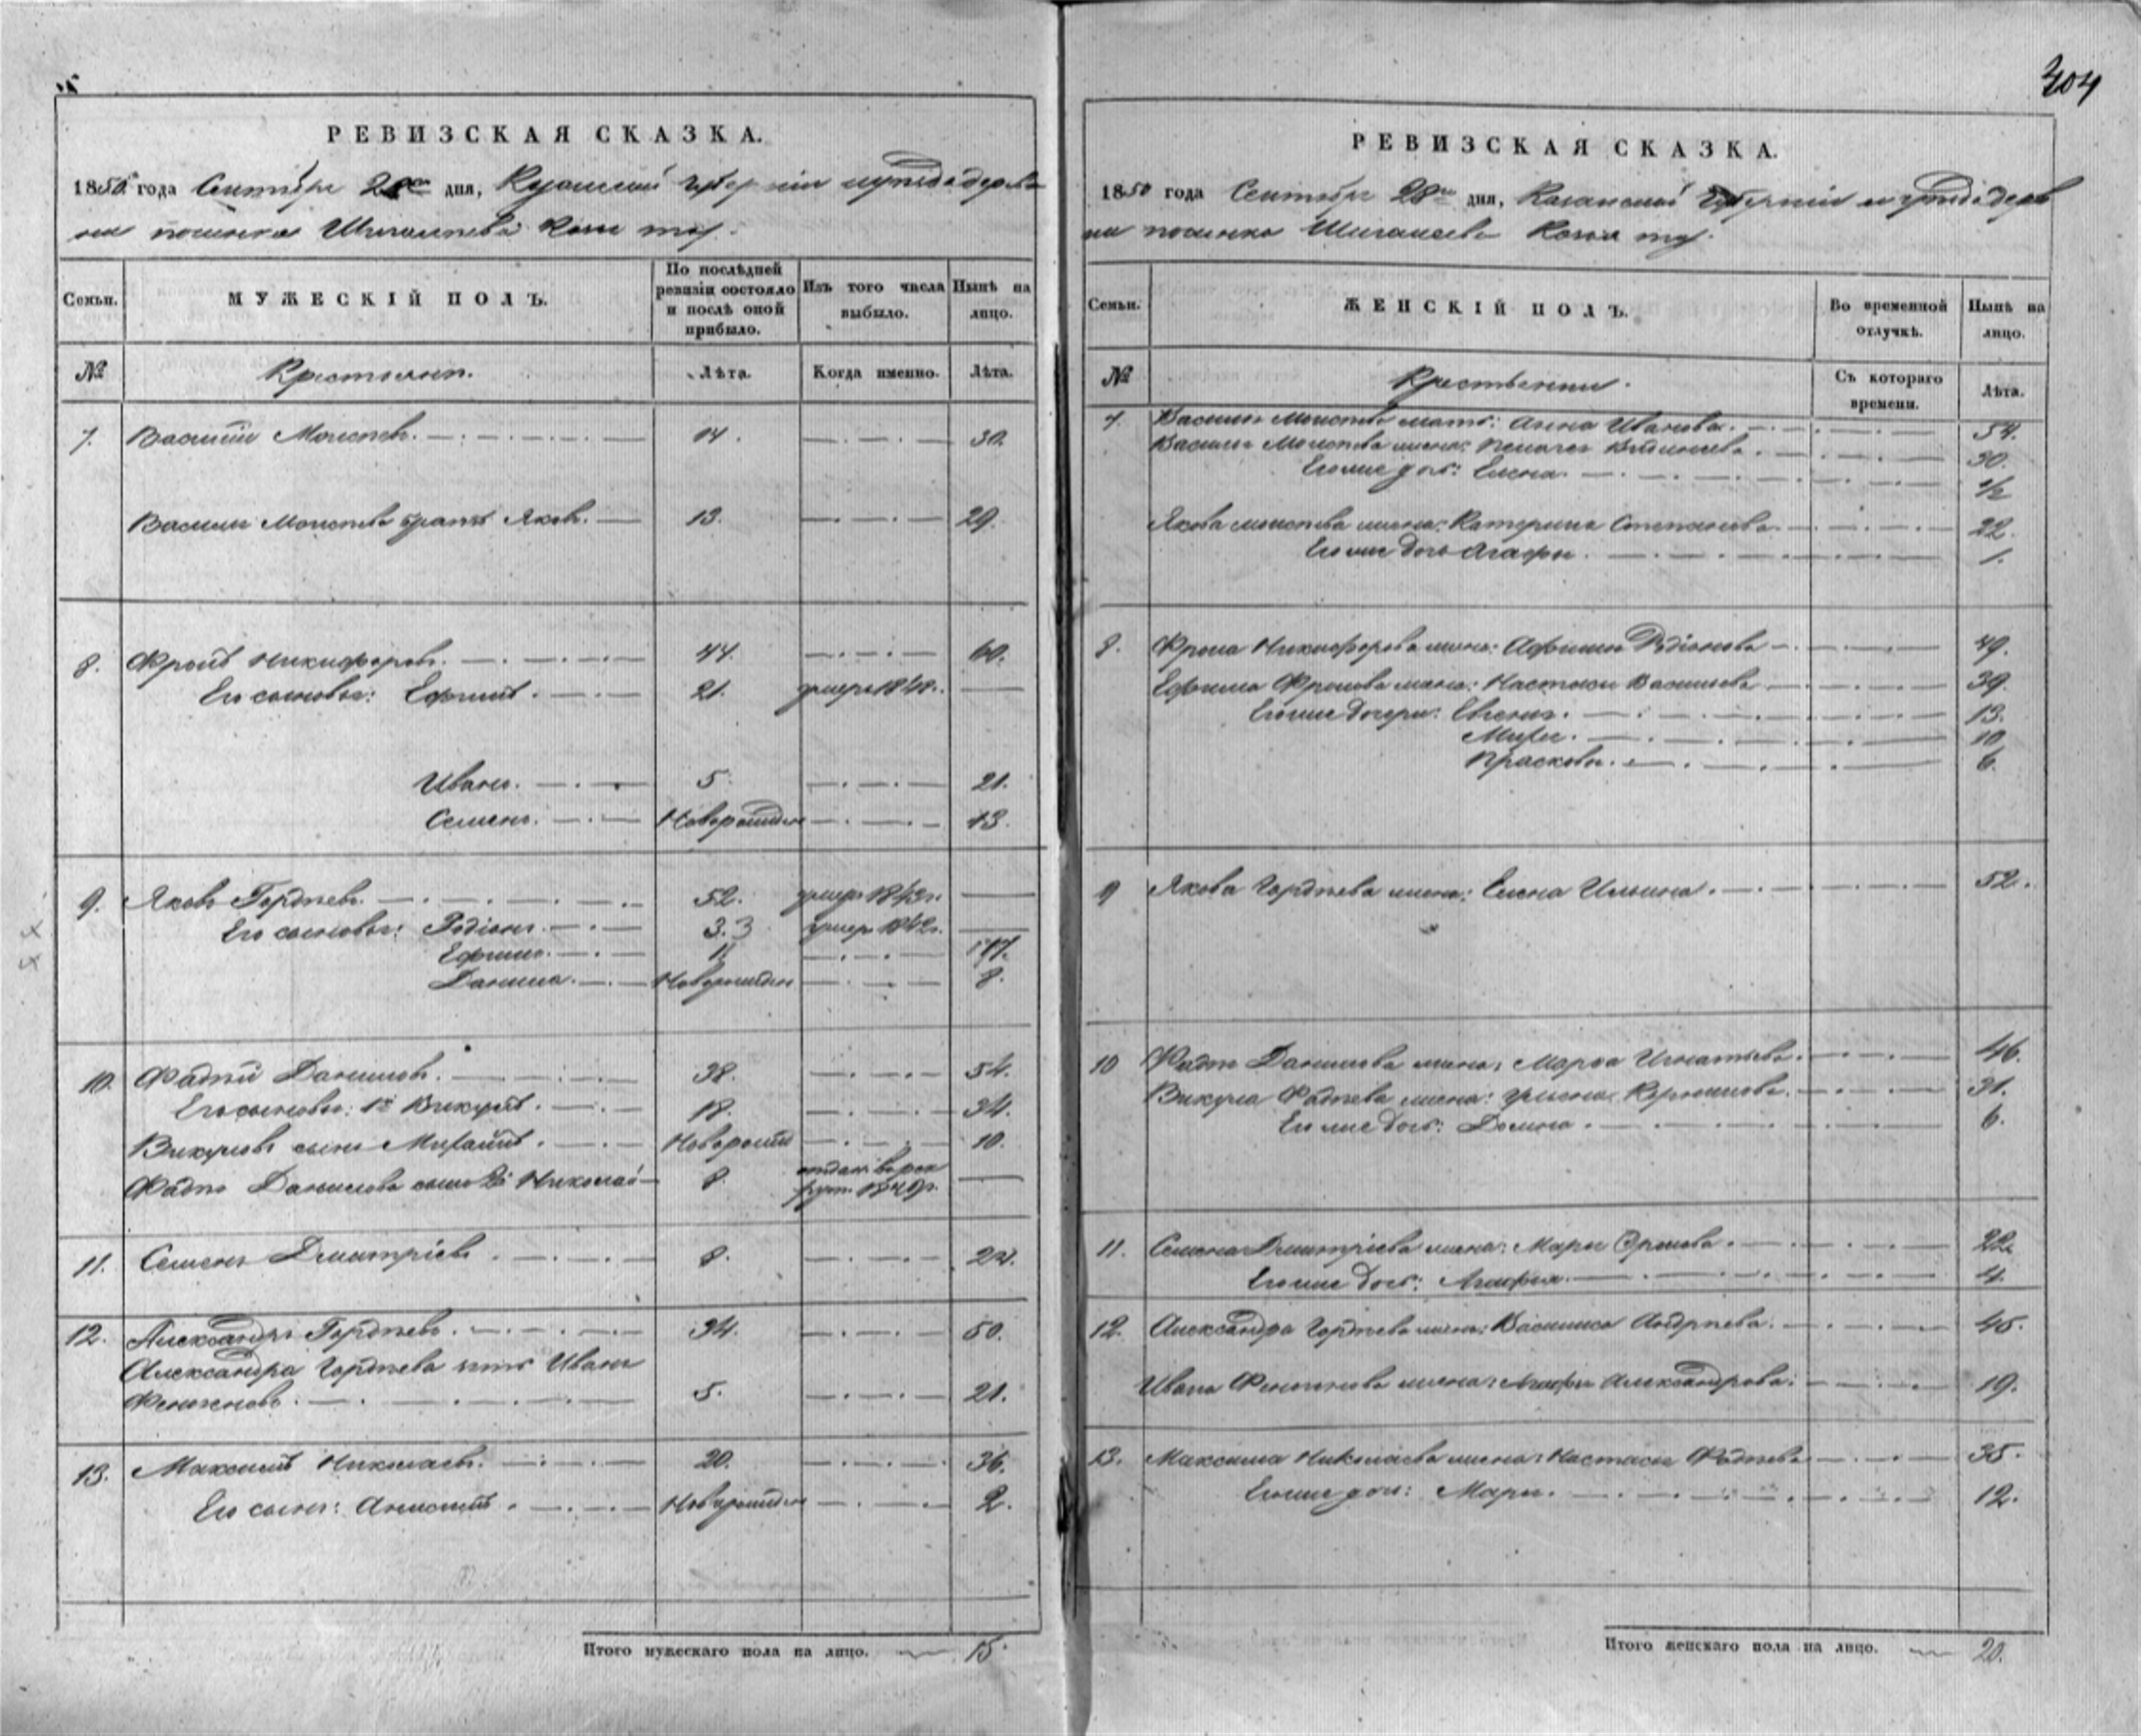 404
РЕВИЗСКАЯ СКАЗКА.
1850 года Сентября 28го дня, Казанской губерніи и уѣзда дерев
ни починка Шигалеева Кошк тожъ.
Семьи.
МУЖЕСКІЙ ПОЛЪ.
По послѣдней ревизіи состояло и послѣ оной прибыло.
Изъ того числа выбыло.
Нынѣ на лицо.
№
Крестьянъ.
Лѣта.
Когда именно.
Лѣта.
7. Василій Моисеевъ. 14. 30.
Василья Моисеева братъ Яковъ. 13. 29.
8. Фролъ Никифоровъ. 44. 60.
Его сыновья: Ефимъ. 21. умеръ 1848.
Иванъ. 5. 21.
Семенъ. Новорожден 13.
9. Яковъ Гордѣевъ. 52. умеръ
Его сыновья: Родіонъ. 3.3 умеръ
Ефимъ. 17.
Данила. Новорожден 8.
10. Фадѣй Даниловъ. 38. 54.
Его сыновья: 1й Викулъ. 18. 34.
Викуловъ сынъ Михайлъ. Новорожд 10.
Фадѣя Данилова сынъ 2й Николай 8. отданъ въ рек
рут. 1849г.
11. Семенъ Дмитріевъ. 8. 24.
12. Александръ Гордѣевъ. 34. 50.
Александра Гордѣева зять Иванъ
5. 21.
13. Максимъ Николаевъ. 20. 36.
Его сынъ: Анисимъ. Новорожден 2.
Итого мужескаго пола на лицо. 15.
РЕВИЗСКАЯ СКАЗКА.
1850 года Сентября 28го дня, Казанской Губерніи и уѣзда дерев
ни починка Шигалеева Кошк тожъ.
Семьи.
ЖЕНСКІЙ ПОЛЪ.
Во временной отлучкѣ.
Нынѣ на лицо.
№
Крестьянки.
Съ котораго времени.
Лѣта.
7. Василья Моисеева мать: Анна Иванова. 54.
Василья Моисеева жена: Пелагея 30.
Его же доч: Елена. 1/2
Якова Моисеева жена: Катерина Степанова. 22.
Его же дочь Агафья. 1.
8. Фрола Никифорова жена: Афимья Родіонова 49.
Ефима Фролова жена: Настасья Васильева 39.
Его же дочери: Евгенья. 13.
Марья. 10.
Прасковья. 6.
9 Якова Гордѣева жена: Елена Ильина. 52.
10 Фадѣя Данилова жена: Марѳа Игнатьева. 46.
Викула Фадѣева жена: Ульяна Корнилова. 31.
Его же дочь: Домна. 6.
11. Семена Дмитріева жена: Марья Фролова. 22.
Его же дочь: Агафья. 4.
12. Александра Гордѣева жена: Василиса Андрѣева. 45.
Ивана жена: Агафья Александрова: 19.
13. Максима Николаева жена: Настасья Фадѣева 35.
Его же доч: Марья. 12.
Итого женскаго пола на лицо. 20.